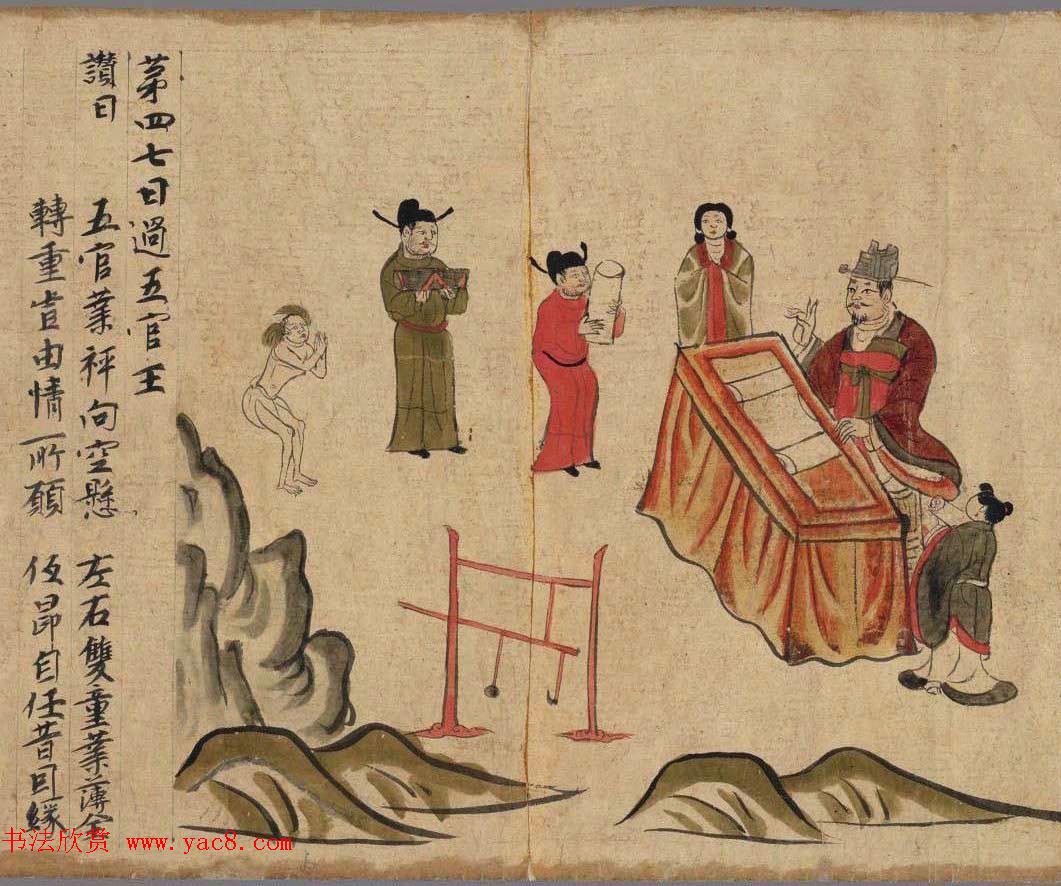 第四七日過五官王
讃曰
五官業秤向空懸 左右雙童業薄全
轉重旨由情所願 伍昂自任昔因緣
书法欣赏 www.yac8.com